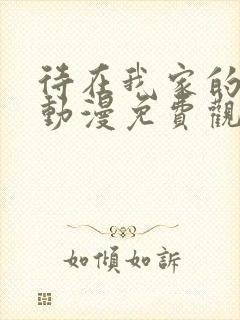 待在我家的
動漫免費觀
如傾如訴